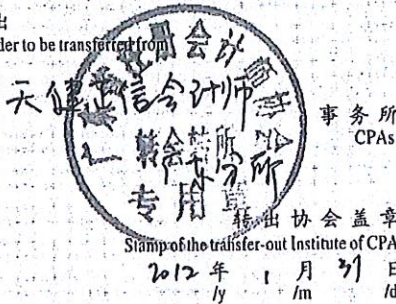 出
der to be transferred from
天健正信会计师
事务所
CPAs
册会计师协会
专用章
分所
转出协会盖章
Stamp of the transfer-out Institute of CPA
2012 年 1 月 31 日
/y /m /d